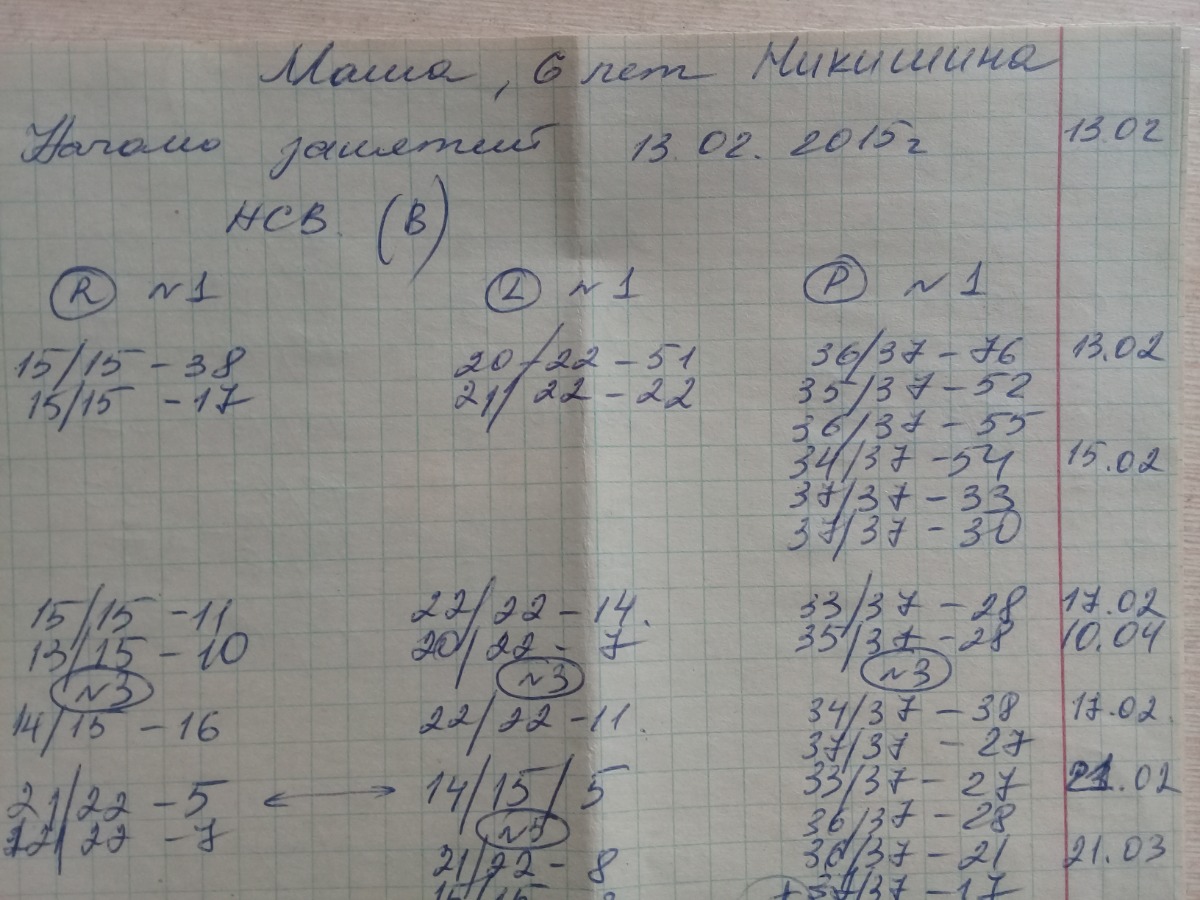 Маша, 6 лет Никишина
Начало занятий 13.02.2015г 13.02
НСВ. (В)
R №1 L №1 P №1
15/15 - 38 20/22 - 51 36/37 - 76 13.02
15/15 - 17 21/22 - 22 35/37 - 52
36/37 - 55
34/37 - 54 15.02
37/37 - 33
37/37 - 30
15/15 - 11 22/22 - 14. 33/37 - 28 17.02
13/15 - 10 20/22 - 7 35/37 - 28 10.04
№3 №3 №3
14/15 - 16 22/22 - 11. 34/37 - 38 17.02
37/37 - 27
21/22 - 5 ⟷ 14/15/5 33/37 - 27 21.02
22/22 - 7 №5 36/37 - 28
21/22 - 8 36/37 - 21 21.03
37/37 - 17